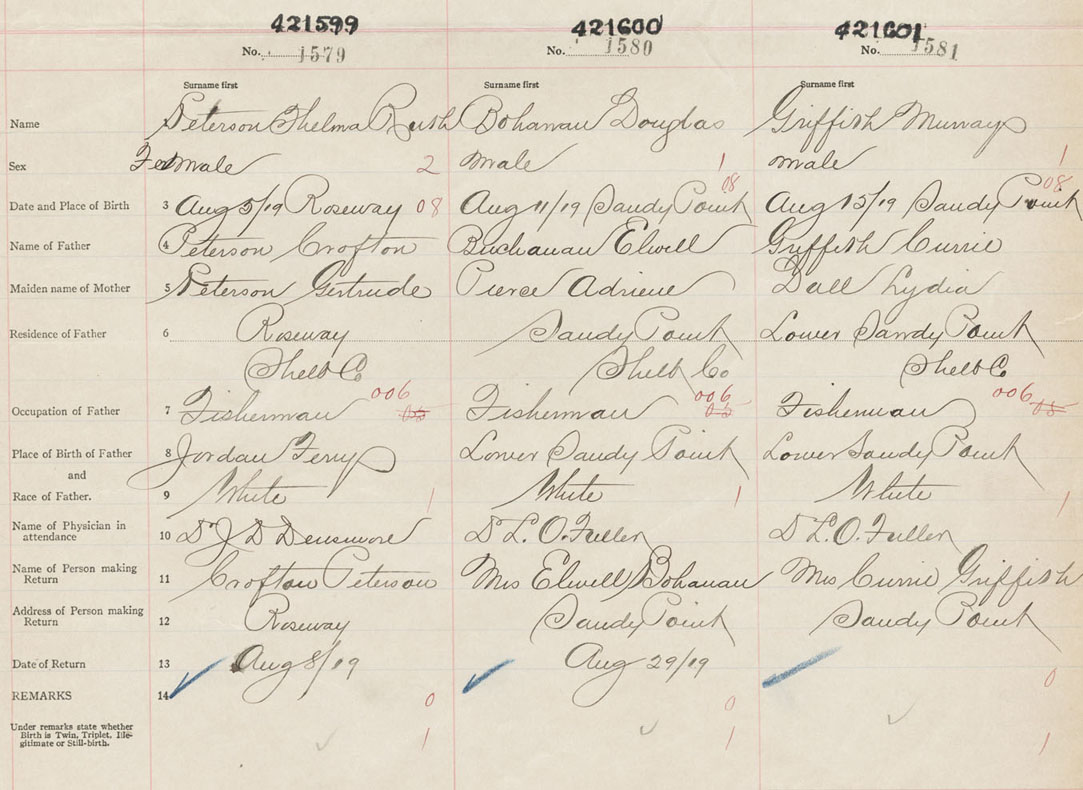 421599 421600 421601
No. 1579 No. 1580 No. 1581
Surname first Surname first Surname first
Name Peterson Thelma Ruth Bohanan Douglas Griffith Murray
Sex Female 2 male 1 male 1
08 08
Date and Place of Birth 3 Aug 5/19 Roseway 08 Aug 11/19 Sandy Point Aug 15/19 Sandy Point
Name of Father 4 Peterson Crofton Buchanan Elwell Griffith Currie
Maiden name of Mother 5 Peterson Gertrude Pierce Adriene Dall Lydia
Residence of Father 6 Roseway Sandy Point Lower Sandy Point
Shelb Co Shelb Co Shelb Co
006 006 006
Occupation of Father 7 Fisherman 05 Fisherman 05 Fisherman 05
Place of Birth of Father 8 Jordan Ferry Lower Sandy Point Lower Sandy Point
and
Race of Father. 9 White 1 White 1 White 1
Name of Physician in
attendance 10 Dr J D Densmore Dr L. O. Fuller Dr L. O. Fuller
Name of Person making
Return 11 Crofton Peterson Mrs Elwell Bohanan Mrs Currie Griffith
Address of Person making
Return 12 Roseway Sandy Point Sandy Point
Date of Return 13 Aug 8/19 Aug 29/19
REMARKS 14 0 0 0
Under remarks state whether
Birth is Twin, Triplet, Ille-
gitimate or Still-birth. 1 1 1